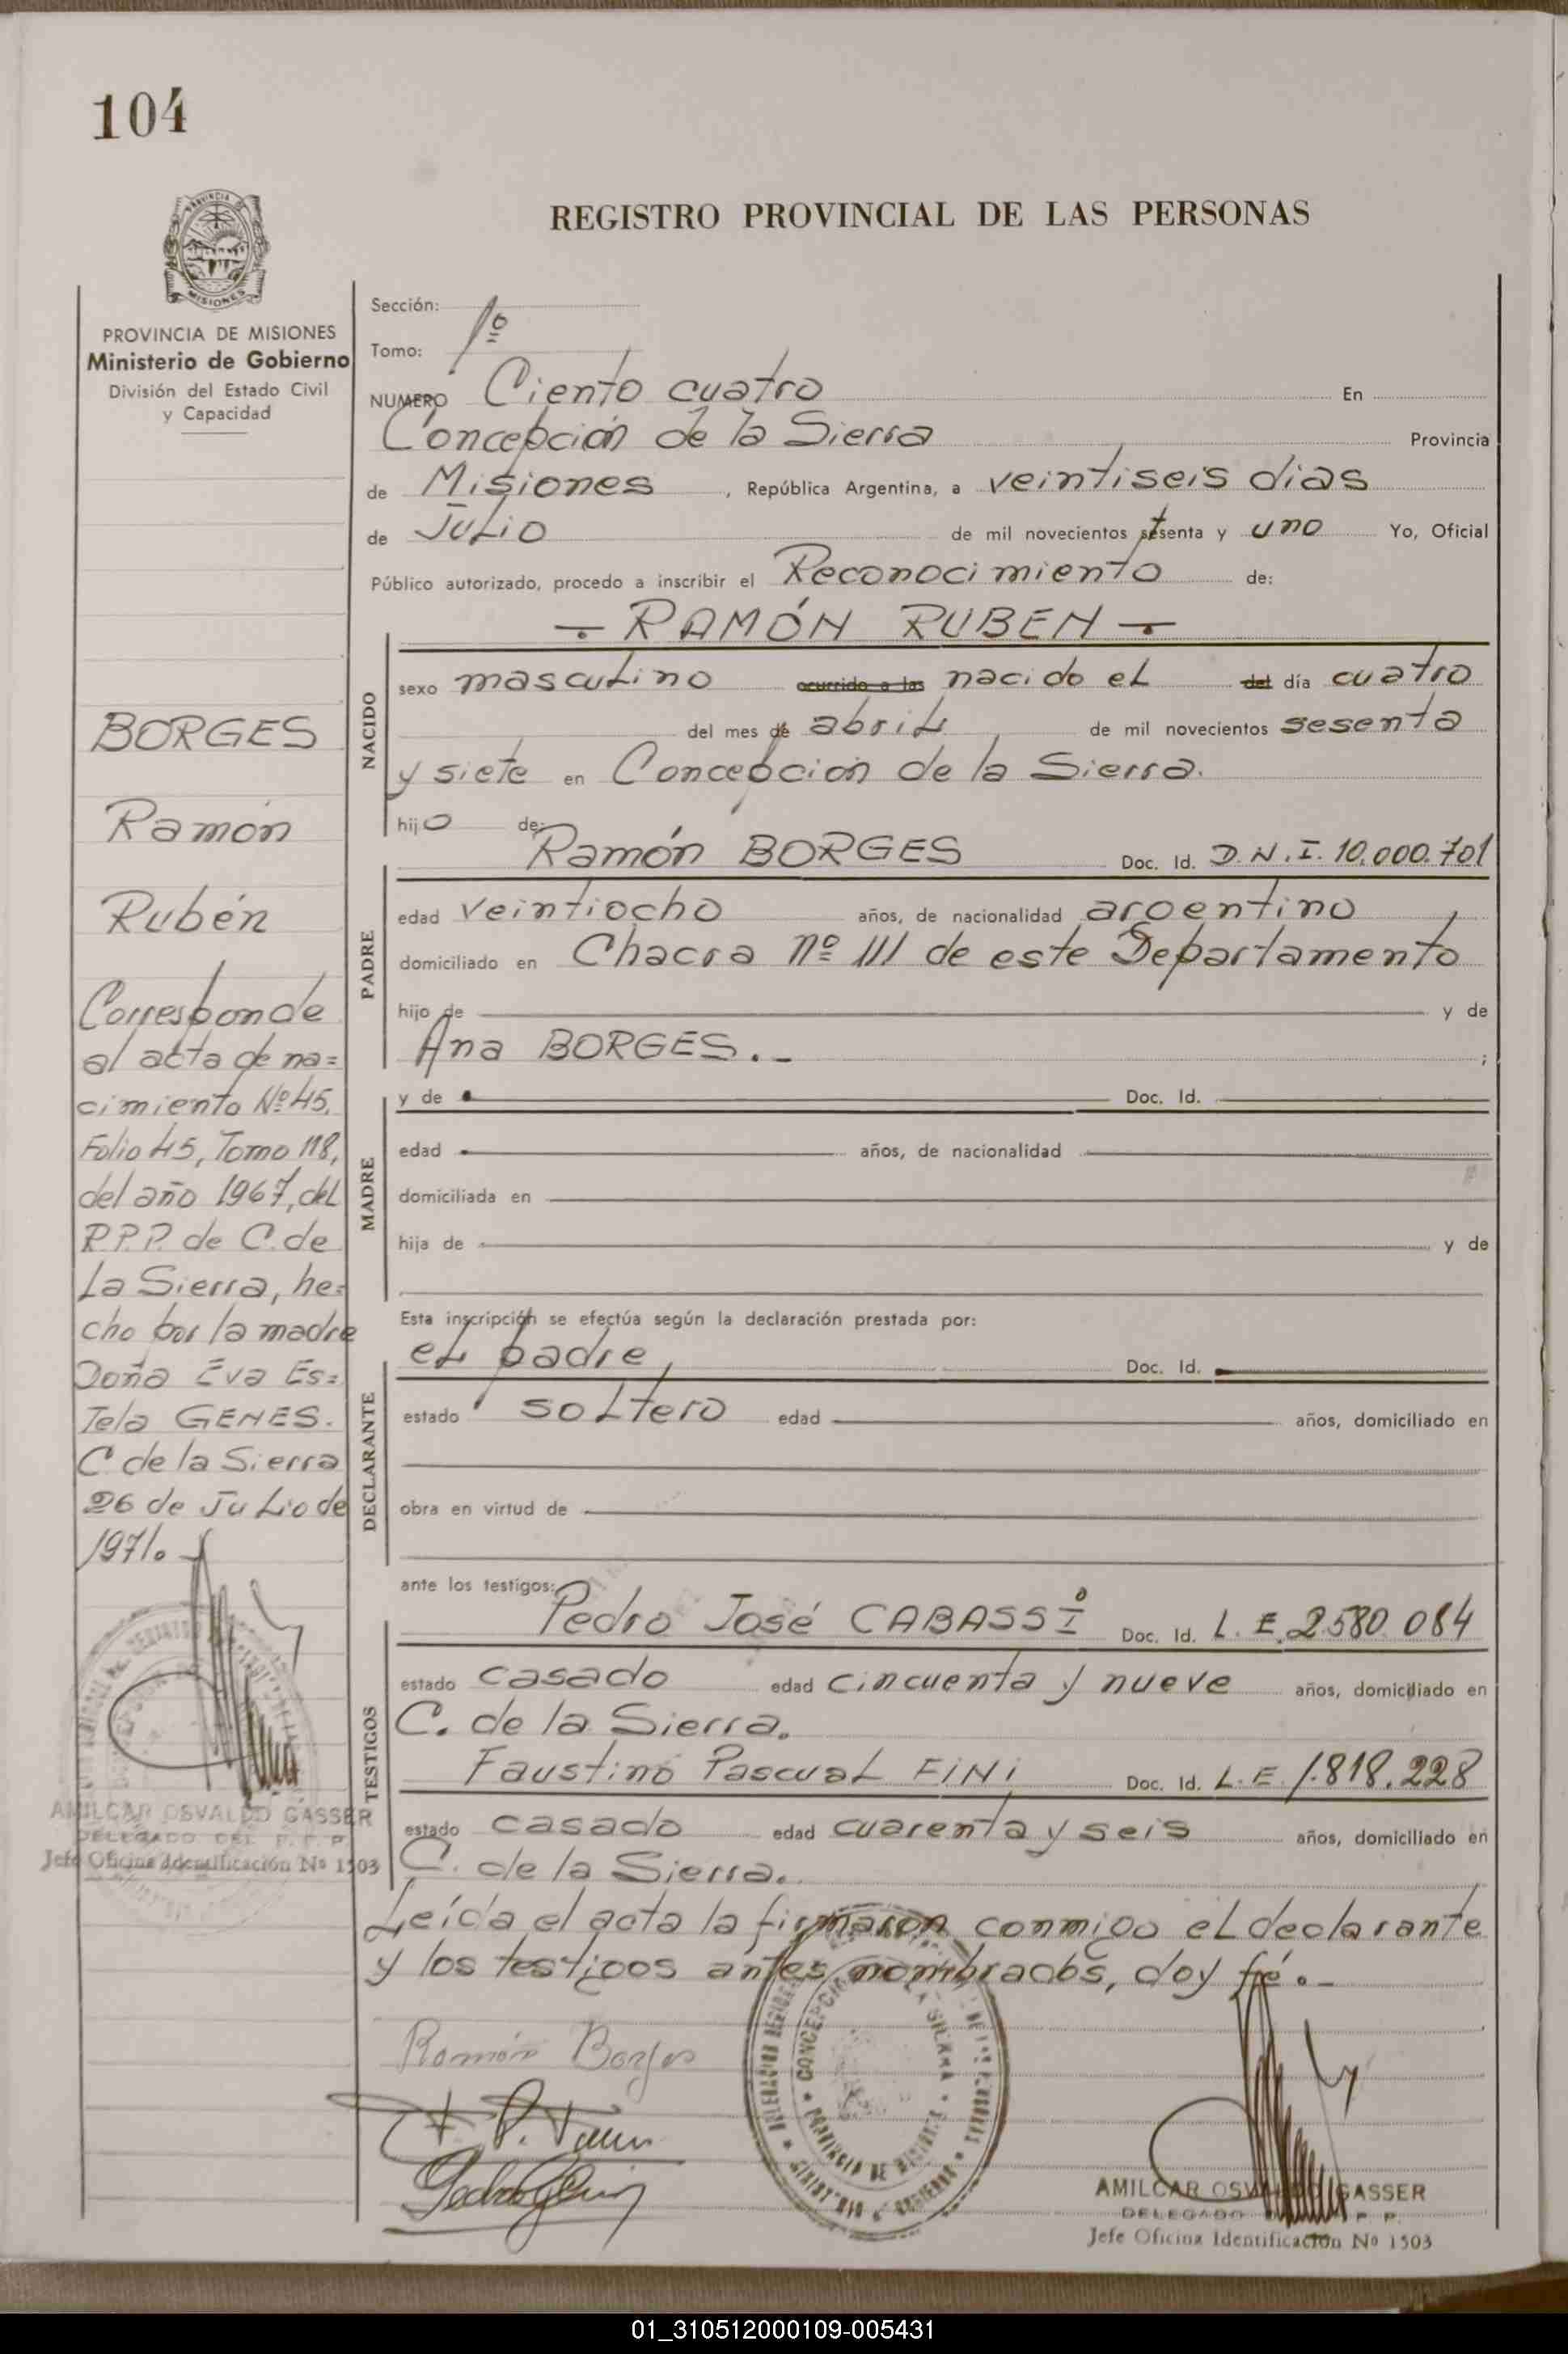 104
REGISTRO PROVINCIAL DE LAS PERSONAS
MISIONES
PROVINCIA DE MISIONES
Ministerio de Gobierno
División del Estado Civil
y Capacidad
BORGES
Ramón
Rubén
Corresponde
al acta de na=
cimiento Nº 45,
Folio 45, Tomo 118,
del año 1967, del
R.P.P. de C. de
La Sierra, he=
cho por la madre
Doña Eva Es=
tela GENES.
C de la Sierra
26 de Julio de
1971.
AMILCAR OSVALDO GASSER
DELEGADO DEL R. P. P.
Jefe Oficina Identificación Nº 1503
Sección:
Tomo: 1º
NUMERO Ciento cuatro En
Concepción de la Sierra Provincia
de Misiones , República Argentina, a veintiseis dias
de Julio de mil novecientos setenta y uno Yo, Oficial
Público autorizado, procedo a inscribir el Reconocimiento de:
RAMÓN RUBEN
NACIDO
sexo masculino ocurrido a las nacido el del día cuatro
del mes de abril de mil novecientos sesenta
y siete en Concepción de la Sierra.
hijo de:
PADRE
Ramón BORGES Doc. Id. D.N.I. 10.000.701
edad veintiocho años, de nacionalidad argentino
domiciliado en Chacra Nº 111 de este Departamento
hijo de y de
Ana BORGES.- ;
MADRE
y de Doc. Id.
edad años, de nacionalidad
domiciliada en
hija de y de
Esta inscripción se efectúa según la declaración prestada por:
DECLARANTE
el padre, Doc. Id.
estado soltero edad años, domiciliado en
obra en virtud de
ante los testigos:
TESTIGOS
Pedro José CABASSI Doc. Id. L. E. 2580.084
estado casado edad cincuenta y nueve años, domiciliado en
C. de la Sierra.
Faustino Pascual FINI Doc. Id. L. E. 1.818.228
estado casado edad cuarenta y seis años, domiciliado en
C. de la Sierra.
Leída el acta la firmaron conmigo el declarante
y los testigos antes nombrados, doy fé.-
Ramón Borges
CONCEPCION DE LA SIERRA
PROVINCIA DE MISIONES
AMILCAR OSVALDO GASSER
DELEGADO R. P. P.
Jefe Oficina Identificación Nº 1503
01_310512000109-005431